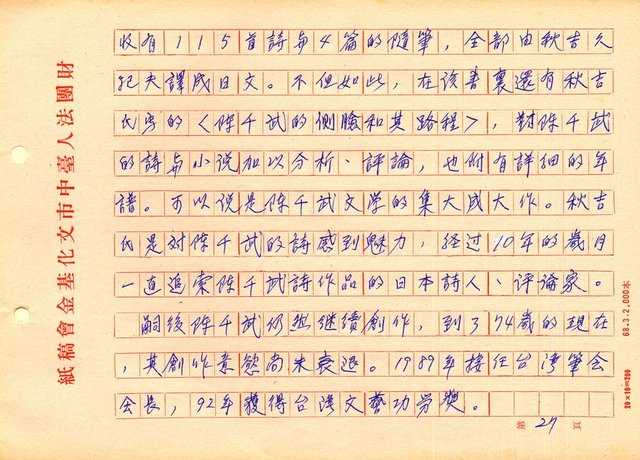 財團法人臺中市文化基金會稿紙
收有115首詩与4篇的隨筆，全部由秋吉久
紀夫譯成日文。不但如此，在該書裏還有秋吉
氏寫的〈陳千武的側臉和其路程〉，對陳千武
的詩与小說加以分析、評論，也附有詳細的年
譜。可以说是陳千武文学的集大成大作。秋吉
氏是对陳千武的詩感到魅力，経过10年的歲月
一直追索陳千武詩作品的日本詩人、评論家。
嗣後陳千武仍然継續創作，到了74歲的現在
，其創作意慾尚未衰退。1989年接任台湾筆会
会長，92年獲得台湾文藝功労奬。
第27頁
20×10=200
68.3.2,000本